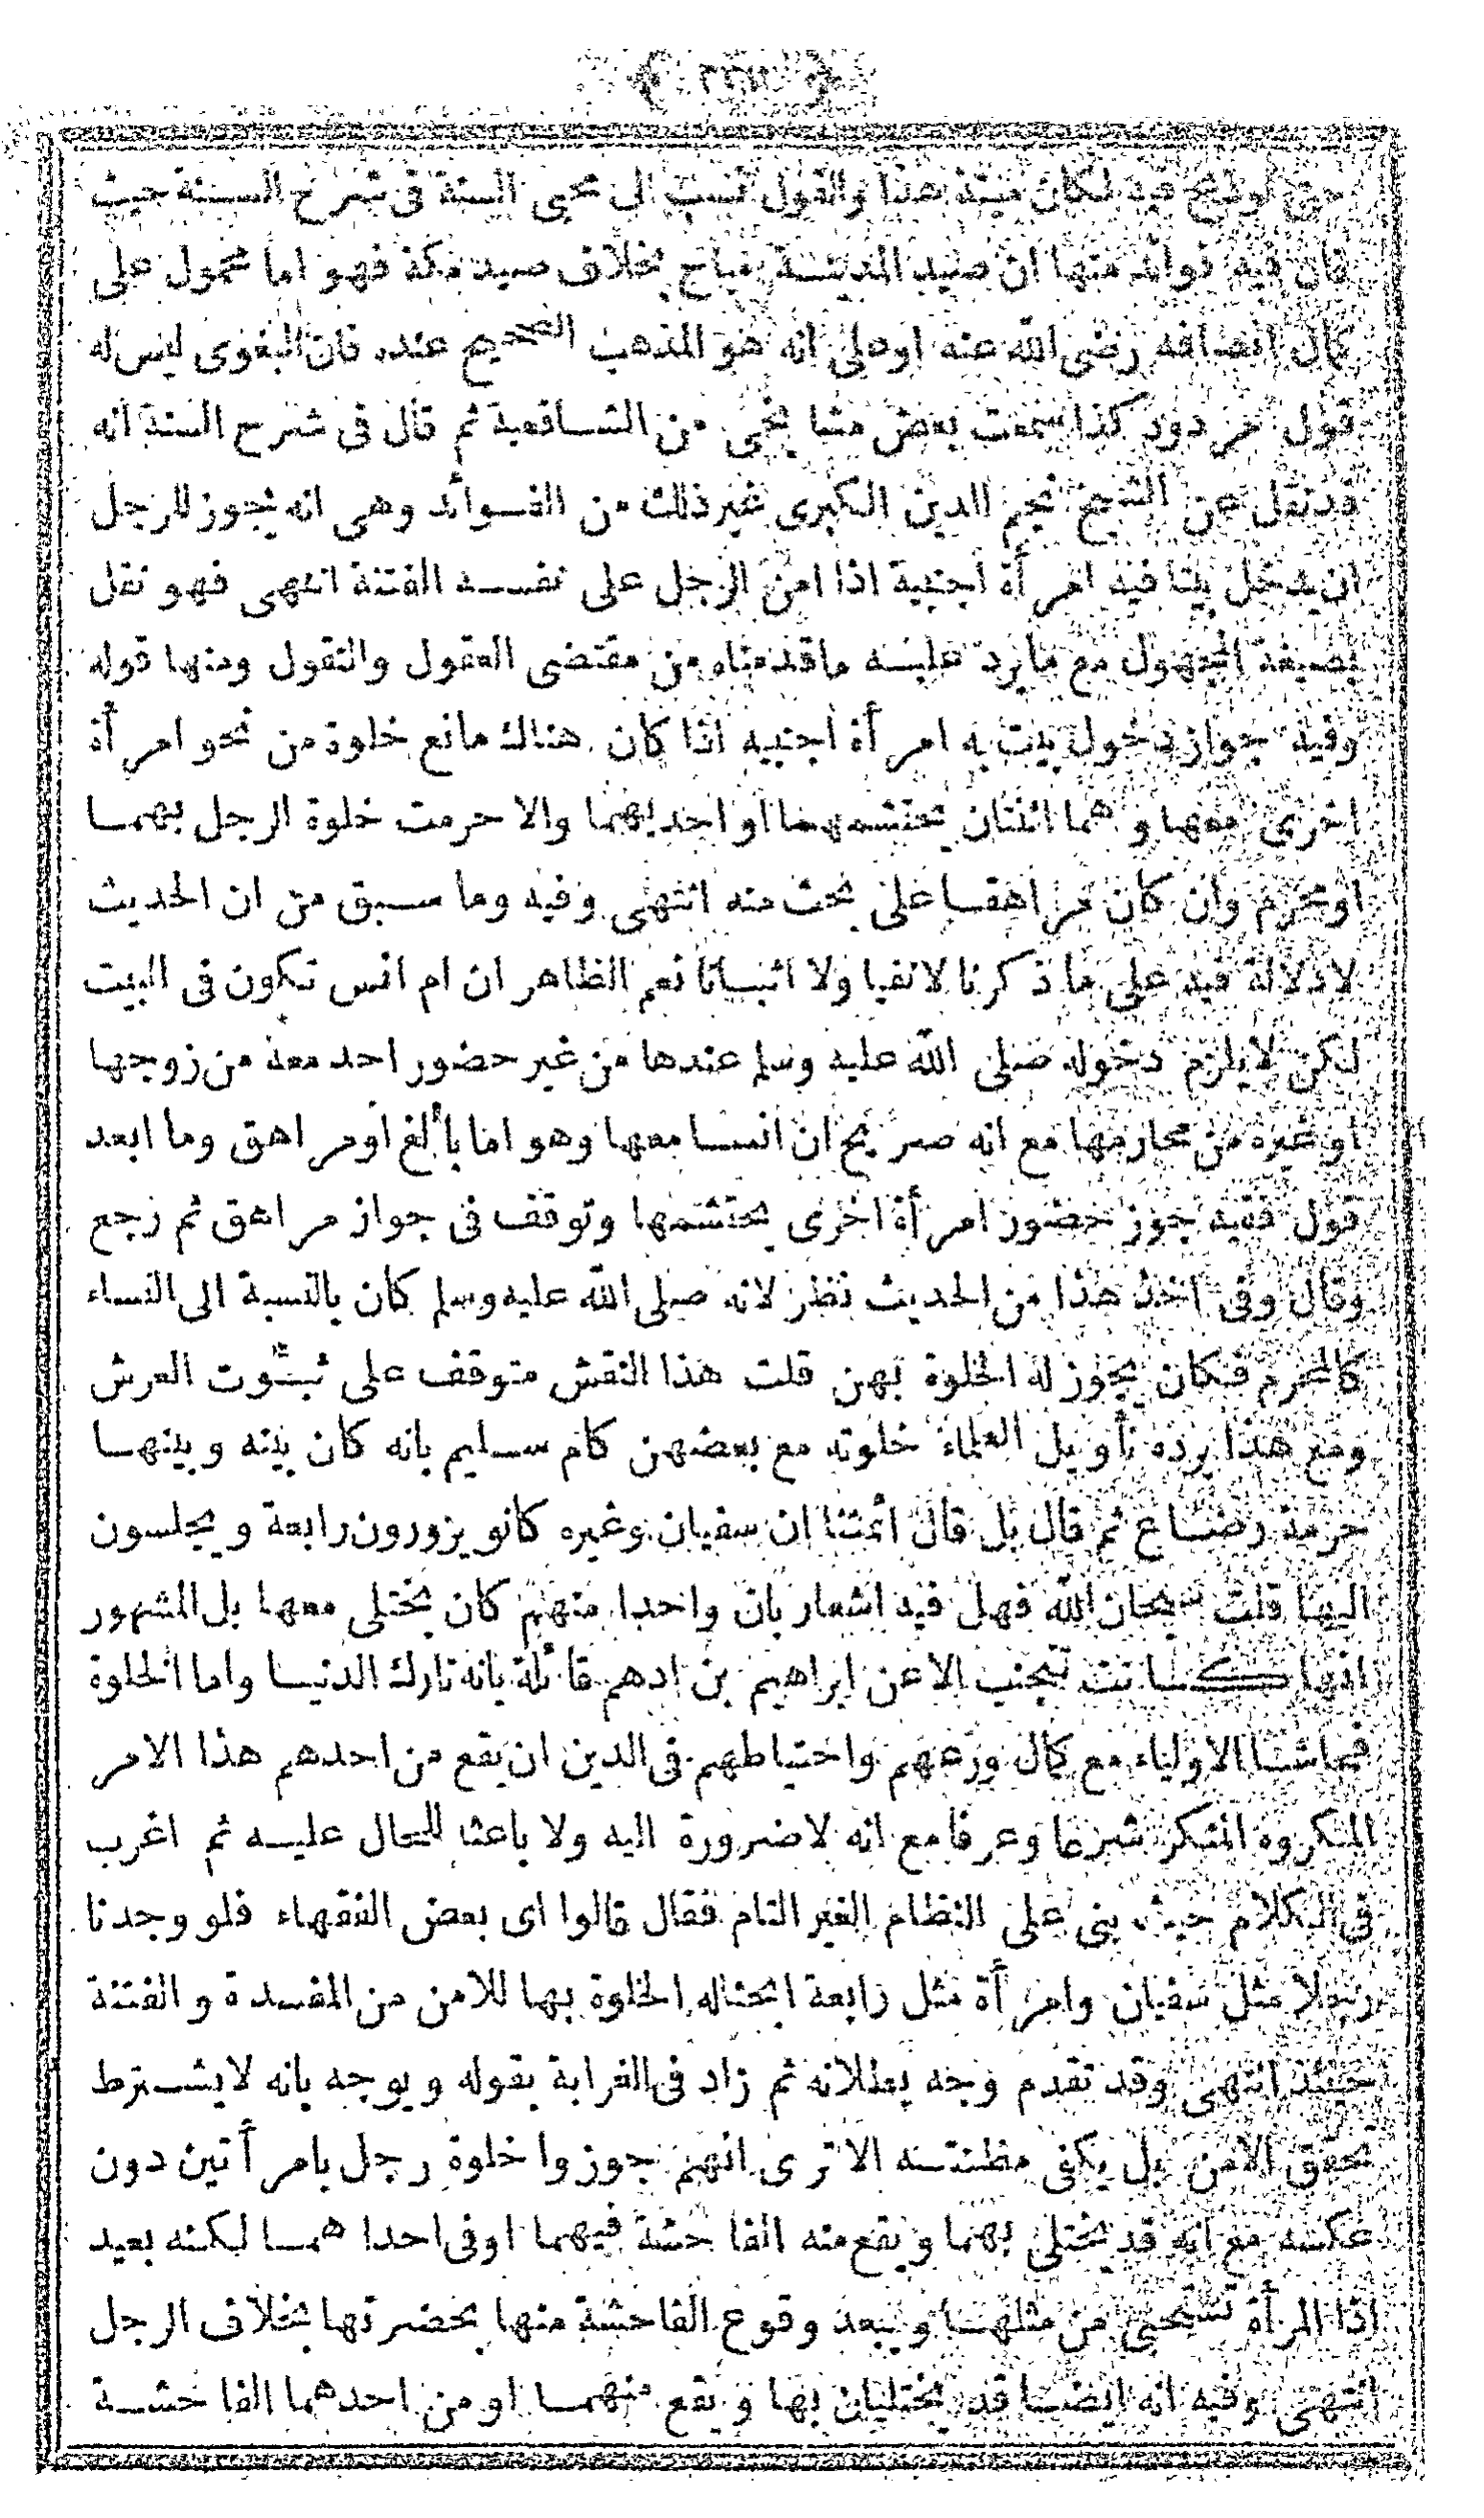 حتى لو ذبح فيه لكان ميتة هذا والقول نسب الى محيى السنة فى شرح السنة حيث
قال فيه فوائد منها ان صيد المدينة مباح بخلاف صيد مكة فهو اما محمول على
كمال انصافه رضى الله عنه او على انه هو المذهب الصحيح عنده فان البغوى ليس له
قول مردود كذا سمعت بعض مشايخى من الشافعية ثم قال فى شرح السنة انه
قد نقل عن الشيخ نجم الدين الكبرى غير ذلك من الفوائد وهى انه يجوز للرجل
ان يدخل بيتا فيه امرأة اجنبية اذا امن الرجل على نفسه الفتنة انتهى فهو نقل
بصيغة المجهول مع ما يرد عليه ما قدمناه من مقتضى العقول والنقول ومنها قوله
وفيه جواز دخول بيت به امرأة اجنبيه اذا كان هناك مانع خلوة من نحو امرأة
اخرى معها وهما اثنتان يحتشمهما او احديهما والا حرمت خلوة الرجل بهما
او محرم وان كان مراهقا على بحث منه انتهى وفيه وما سبق من ان الحديث
لا دلالة فيه على ما ذكرنا لا نفيا ولا اثباتا نعم الظاهر ان ام انس تكون فى البيت
لكن لا يلزم دخوله صلى الله عليه وسلم عندها من غير حضور احد معه من زوجها
او غيره من محارمها مع انه صريح ان انسا معها وهو اما بألغ او مراهق وما ابعد
قول فقيه جوز حضور امرأة اخرى يحتشمها وتوقف فى جواز مراهق ثم رجع
وقال وفى اخذ هذا من الحديث نظر لانه صلى الله عليه وسلم كان بالنسبة الى النساء
كالمحرم فكان يجوز له الخلوة بهن قلت هذا النقش متوقف على ثبوت العرش
ومع هذا يرده تأويل العلماء خلوته مع بعضهن كام سليم بانه كان بينه وبينها
حرمة رضاع ثم قال بل قال ائمتنا ان سفيان وغيره كانو يزورون رابعة ويجلسون
اليها قلت سبحان الله فهل فيه اشعار بان واحدا منهم كان يختلى معها بل المشهور
انها كانت تجتنب الا عن ابراهيم بن ادهم قائلة بانه تارك الدنيا واما الخلوة
فحاشا الاولياء مع كمال ورعهم واحتياطهم فى الدين ان يقع من احدهم هذا الامر
المكروه المنكر شرعا وعرفا مع انه لا ضرورة اليه ولا باعثا للحال عليه ثم اغرب
فى الكلام حيث بنى على النظام الغير التام فقال قالوا اى بعض الفقهاء فلو وجدنا
رجلا مثل سفيان وامرأة مثل رابعة ابحناله الخلوة بها للامن من المفسدة والفتنة
حينئذ انتهى وقد تقدم وجه بطلانه ثم زاد فى الغرابة بقوله ويوجه بانه لا يشترط
تحقق الامن بل يكفى مظنته الا ترى انهم جوزوا خلوة رجل بامرأتين دون
عكسه مع انه قد يختلى بهما ويقع منه الفاحشة فيهما او فى احداهما لكنه بعيد
اذا المرأة تستحيى من مثلها ويبعد وقوع الفاحشة منها بحضرتها بخلاف الرجل
انتهى وفيه انه ايضا قد يختليان بها ويقع منهما او من احدهما الفاحشة